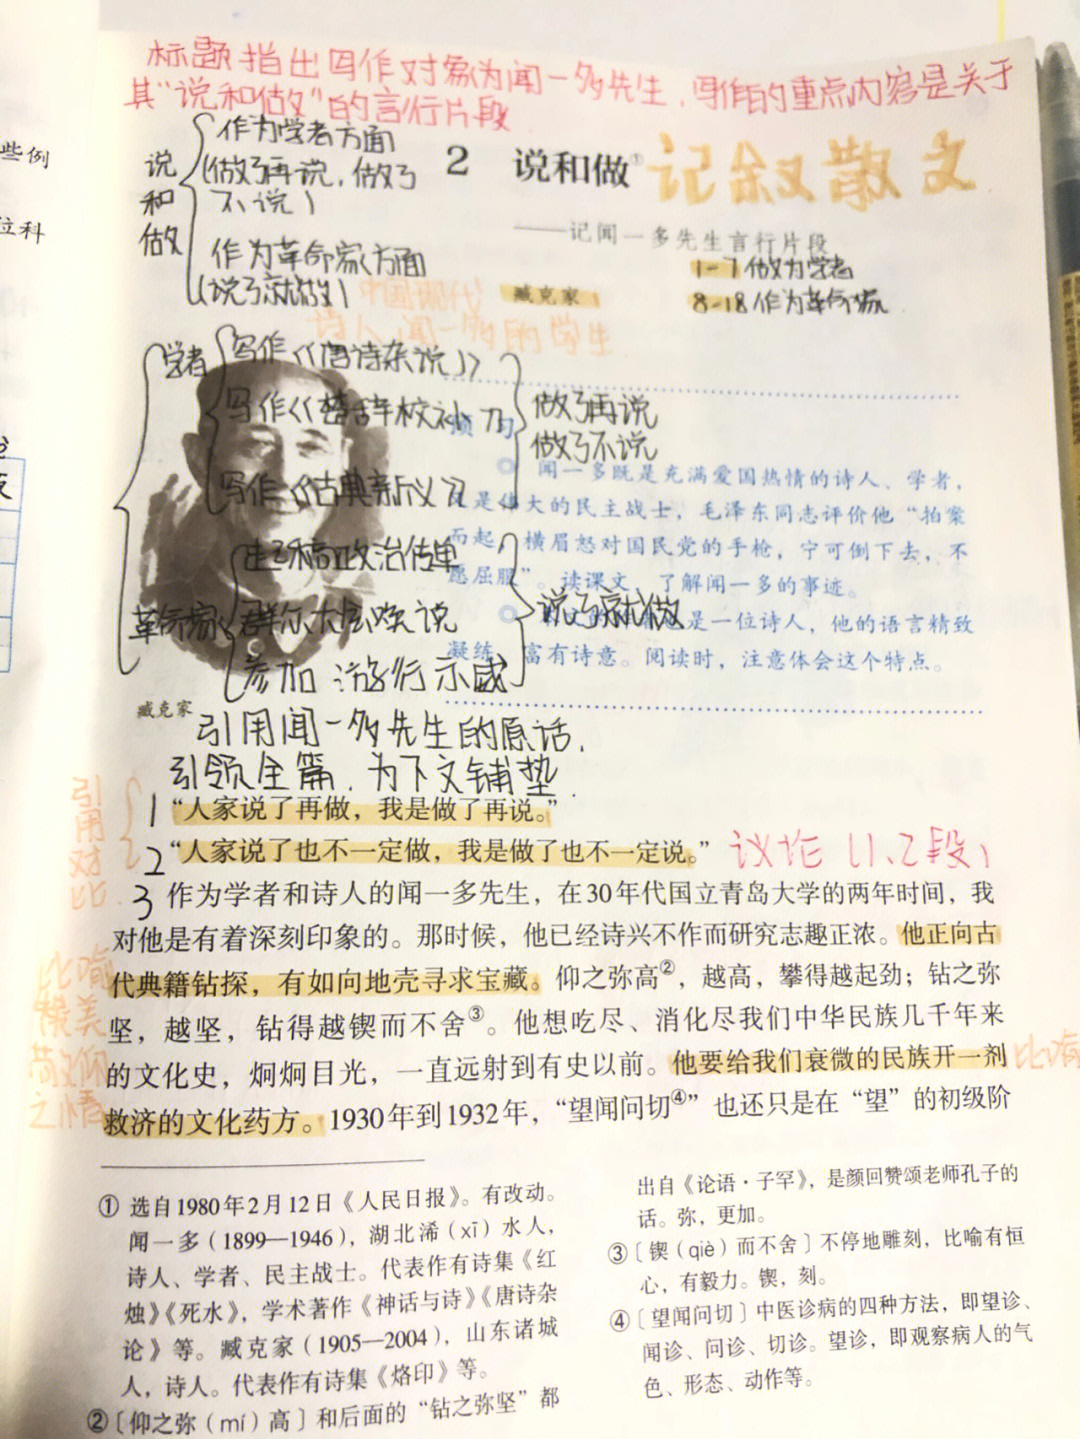 标题指出写作对象为闻一多先生，写作的重点内容是关于
其“说和做”的言行片段
些例
位科
说和做
作为学者方面
(做了再说，做了
不说)
作为革命家方面
(说了就做)
2 说和做①
记叙散文
——记闻一多先生言行片段
1-7 做为学者
臧克家
8-18 作为革命家
中国现代
诗人 闻一多的学生
学者
写作《唐诗杂说》
写作《楚辞校补》
写作《古典新义》
做了再说
做了不说
预习
闻一多既是充满爱国热情的诗人、学者，
又是伟大的民主战士，毛泽东同志评价他“拍案
而起，横眉怒对国民党的手枪，宁可倒下去，不
愿屈服”。读课文，了解闻一多的事迹。
是一位诗人，他的语言精致
凝练，富有诗意。阅读时，注意体会这个特点。
革命家
起稿政治传单
群众大会演说
参加游行示威
说了就做
臧克家
引用闻一多先生的原话，
引领全篇，为下文铺垫．
引用对比
1 “人家说了再做，我是做了再说。”
2 “人家说了也不一定做，我是做了也不一定说。”
议论(1、2段)
3 作为学者和诗人的闻一多先生，在30年代国立青岛大学的两年时间，我
对他是有着深刻印象的。那时候，他已经诗兴不作而研究志趣正浓。他正向古
代典籍钻探，有如向地壳寻求宝藏。仰之弥高②，越高，攀得越起劲；钻之弥
坚，越坚，钻得越锲而不舍③。他想吃尽、消化尽我们中华民族几千年来
的文化史，炯炯目光，一直远射到有史以前。他要给我们衰微的民族开一剂
救济的文化药方。1930年到1932年，“望闻问切④”也还只是在“望”的初级阶
比喻
赞美
敬仰
之情
比喻
① 选自1980年2月12日《人民日报》。有改动。
闻一多（1899—1946），湖北浠（xī）水人，
诗人、学者、民主战士。代表作有诗集《红
烛》《死水》，学术著作《神话与诗》《唐诗杂
论》等。臧克家（1905—2004），山东诸城
人，诗人。代表作有诗集《烙印》等。
②〔仰之弥（mí）高〕和后面的“钻之弥坚”都
出自《论语·子罕》，是颜回赞颂老师孔子的
话。弥，更加。
③〔锲（qiè）而不舍〕不停地雕刻，比喻有恒
心，有毅力。锲，刻。
④〔望闻问切〕中医诊病的四种方法，即望诊、
闻诊、问诊、切诊。望诊，即观察病人的气
色、形态、动作等。